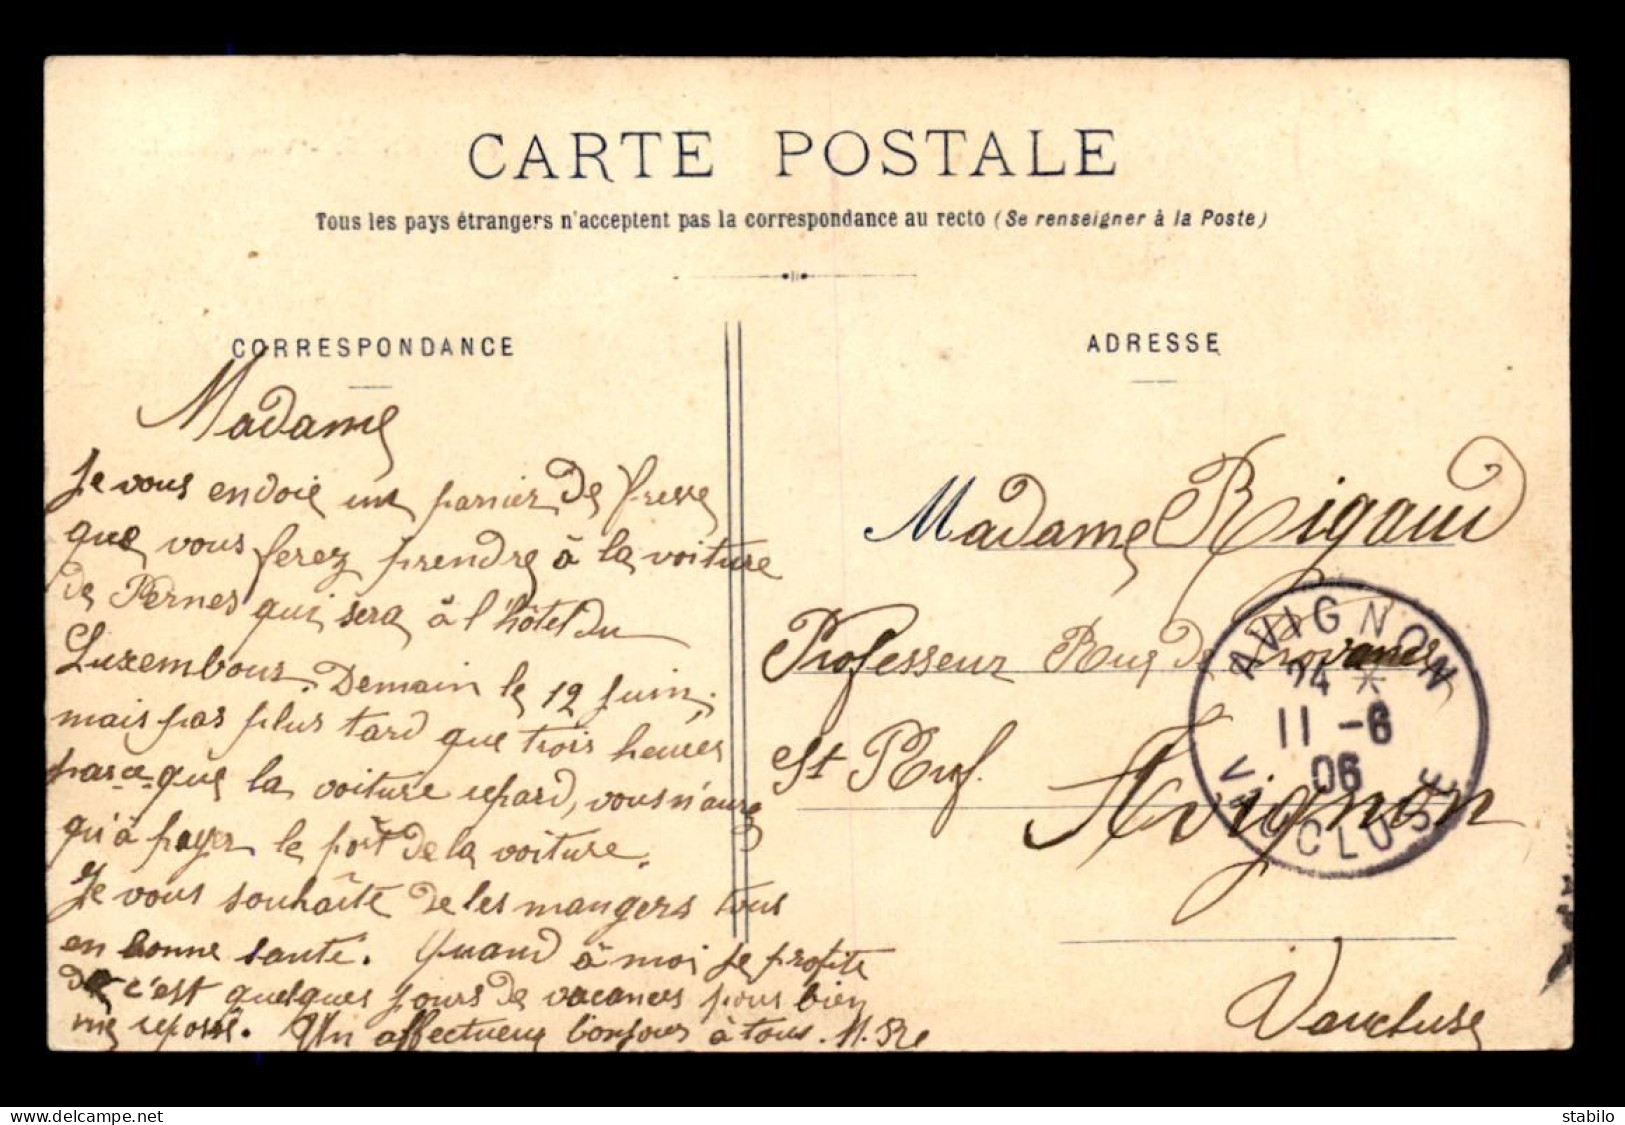 CARTE POSTALE
Tous les pays étrangers n'acceptent pas la correspondance au recto (Se renseigner à la Poste)
CORRESPONDANCE
Madame
Je vous endoie un panier de frese
que vous ferez prendre à la voiture
de Pernes qui sera à l'hôtel du
Luxembour. Demain le 12 juin,
mais pas plus tard que trois heures
parce que la voiture repard, vous n'aure
qu'à payer le port de la voiture.
Je vous souhaite de les mangers tous
en bonne santé. Quand à moi je profite
de c'est quelques jours de vacances pour bien
me reposé. Un affectueux bonjour à tous.
ADRESSE
Madame Rigaud
Professeur Rue de Provence
St Ruf.
Avignon
Vaucluse
AVIGNON
24 *
11 -6
06
VAUCLUSE
stabilo
delcampe.net